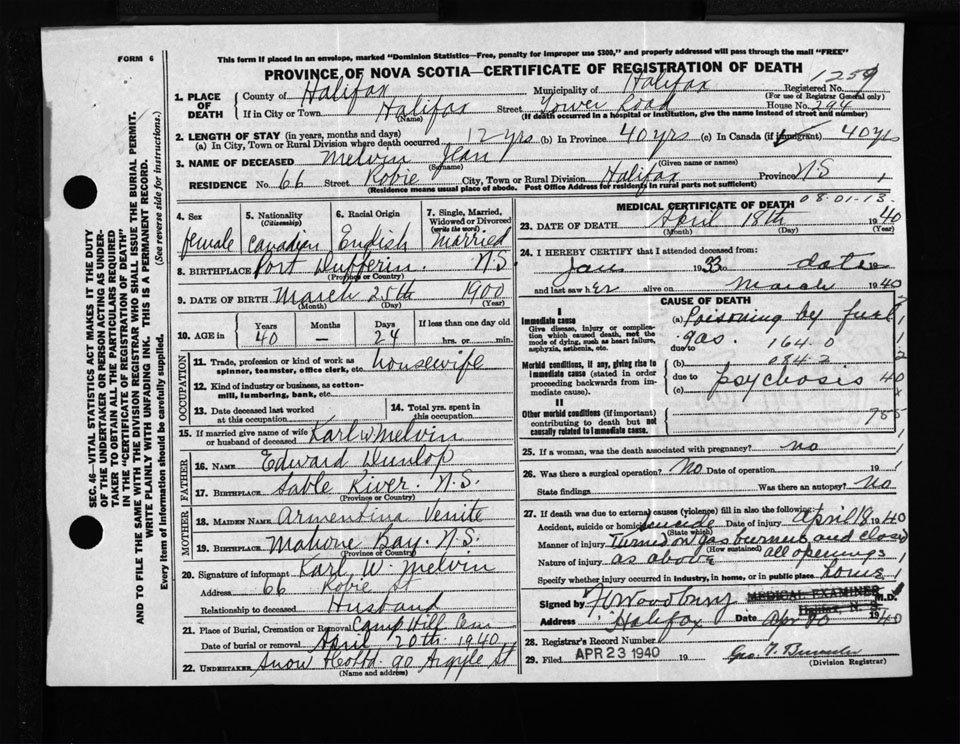 FORM 6
This form if placed in an envelope, marked "Dominion Statistics—Free, penalty for improper use $300," and properly addressed will pass through the mail "FREE"
PROVINCE OF NOVA SCOTIA—CERTIFICATE OF REGISTRATION OF DEATH
1. PLACE OF DEATH
County of Halifax Municipality of Halifax Registered No. 1259
(For use of Registrar General only)
If in City or Town Halifax Street Tower Road House No. 294
(Name) (If death occurred in a hospital or institution, give the name instead of street and number)
2. LENGTH OF STAY (in years, months and days)
(a) In City, Town or Rural Division where death occurred 12 yrs (b) In Province 40 yrs (c) In Canada (if immigrant) 40 yrs
3. NAME OF DECEASED Melvin Jean
(Surname) (Given name or names)
RESIDENCE No. 66 Street Robie City, Town or Rural Division Halifax Province N.S
(Residence means usual place of abode. Post Office Address for residents in rural parts not sufficient)
4. Sex female
5. Nationality (Citizenship) Canadian
6. Racial Origin English
7. Single, Married, Widowed or Divorced (write the word) Married
8. BIRTHPLACE Port Dufferin. N.S.
(Province or Country)
9. DATE OF BIRTH March 25th 1900
(Month) (Day) (Year)
10. AGE in Years 40 Months — Days 24 If less than one day old hrs. or min.
OCCUPATION
11. Trade, profession or kind of work as spinner, teamster, office clerk, etc. housewife
12. Kind of industry or business, as cotton-mill, lumbering, bank, etc.
13. Date deceased last worked at this occupation
14. Total yrs. spent in this occupation
15. If married give name of wife or husband of deceased Karl W Melvin
FATHER
16. NAME Edward Dunlop
17. BIRTHPLACE Sable River. N.S.
(Province or Country)
MOTHER
18. MAIDEN NAME Armentina Venite
19. BIRTHPLACE Mahone Bay. N.S.
(Province or Country)
20. Signature of informant Karl W. Melvin
Address 66 Robie St
Relationship to deceased Husband
21. Place of Burial, Cremation or Removal Camp Hill Cem
Date of burial or removal April 20th 1940
22. UNDERTAKER Snow 90 Argyle St
(Name and address)
MEDICAL CERTIFICATE OF DEATH
08.01-13.
23. DATE OF DEATH April 18th 1940
(Month) (Day) (Year)
24. I HEREBY CERTIFY that I attended deceased from:
Jan 1933 to date 19
and last saw her alive on March 1940
CAUSE OF DEATH
I
Immediate cause
Give disease, injury or complication which caused death, not the mode of dying, such as heart failure, asphyxia, asthenia, etc.
(a) Poisoning by fuel gas.
due to 164.0
084.2
Morbid conditions, if any, giving rise to immediate cause (stated in order proceeding backwards from immediate cause).
(b)
due to psychosis
(c)
II
Other morbid conditions (if important) contributing to death but not causally related to immediate cause.
25. If a woman, was the death associated with pregnancy? no
26. Was there a surgical operation? No Date of operation 19
State findings Was there an autopsy? No
27. If death was due to external causes (violence) fill in also the following:
Accident, suicide or homicide suicide Date of injury April 18 1940
(State which)
Manner of injury Turned on gas burners and closed all openings
(How sustained)
Nature of injury as above
Specify whether injury occurred in industry, in home, or in public place home
Signed by Woodbury M.D.
MEDICAL EXAMINER
Halifax, N. S.
Address Halifax Date Apr 20 1940
28. Registrar's Record Number
29. Filed APR 23 1940 19
(Division Registrar)
SEC. 46—VITAL STATISTICS ACT MAKES IT THE DUTY OF THE UNDERTAKER OR PERSON ACTING AS UNDERTAKER TO OBTAIN ALL THE PARTICULARS REQUIRED IN THE "CERTIFICATE OF REGISTRATION OF DEATH" AND TO FILE THE SAME WITH THE DIVISION REGISTRAR WHO SHALL ISSUE THE BURIAL PERMIT.
WRITE PLAINLY WITH UNFADING INK. THIS IS A PERMANENT RECORD.
Every item of information should be carefully supplied. (See reverse side for instructions.)